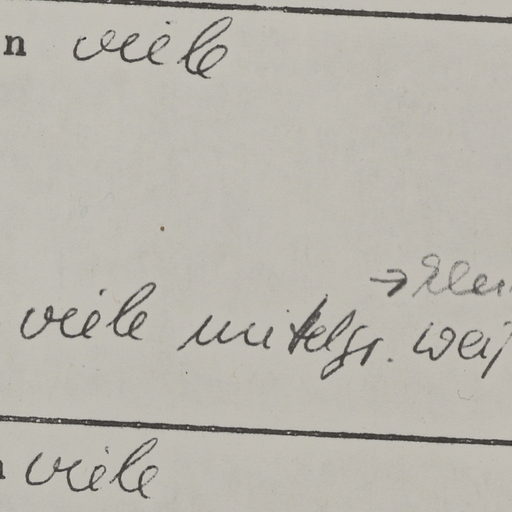 n viele
→ klei
viele mittelgr. weiß
n viele